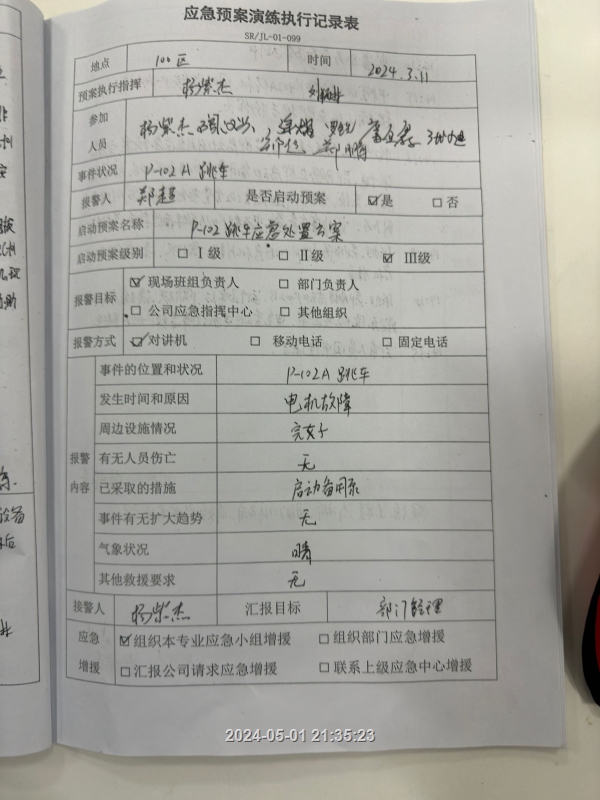 应急预案演练执行记录表
SR/JL-01-099
地点 100区 时间 2024.3.11
预案执行指挥 杨紫杰
参加人员 杨紫杰
事件状况 P-102A跳车
报警人 郑超 是否启动预案 ☑是 □否
启动预案名称 P-102跳车应急处置方案
启动预案级别 □Ⅰ级 □Ⅱ级 ☑Ⅲ级
报警目标 ☑现场班组负责人 □部门负责人
□公司应急指挥中心 □其他组织
报警方式 ☑对讲机 □移动电话 □固定电话
报警内容
事件的位置和状况 P-102A跳车
发生时间和原因 电机故障
周边设施情况 完好
有无人员伤亡 无
已采取的措施 启动备用泵
事件有无扩大趋势 无
气象状况 晴
其他救援要求 无
接警人 杨紫杰 汇报目标 部门经理
应急增援 ☑组织本专业应急小组增援 □组织部门应急增援
□汇报公司请求应急增援 □联系上级应急中心增援
2024-05-01 21:35:23